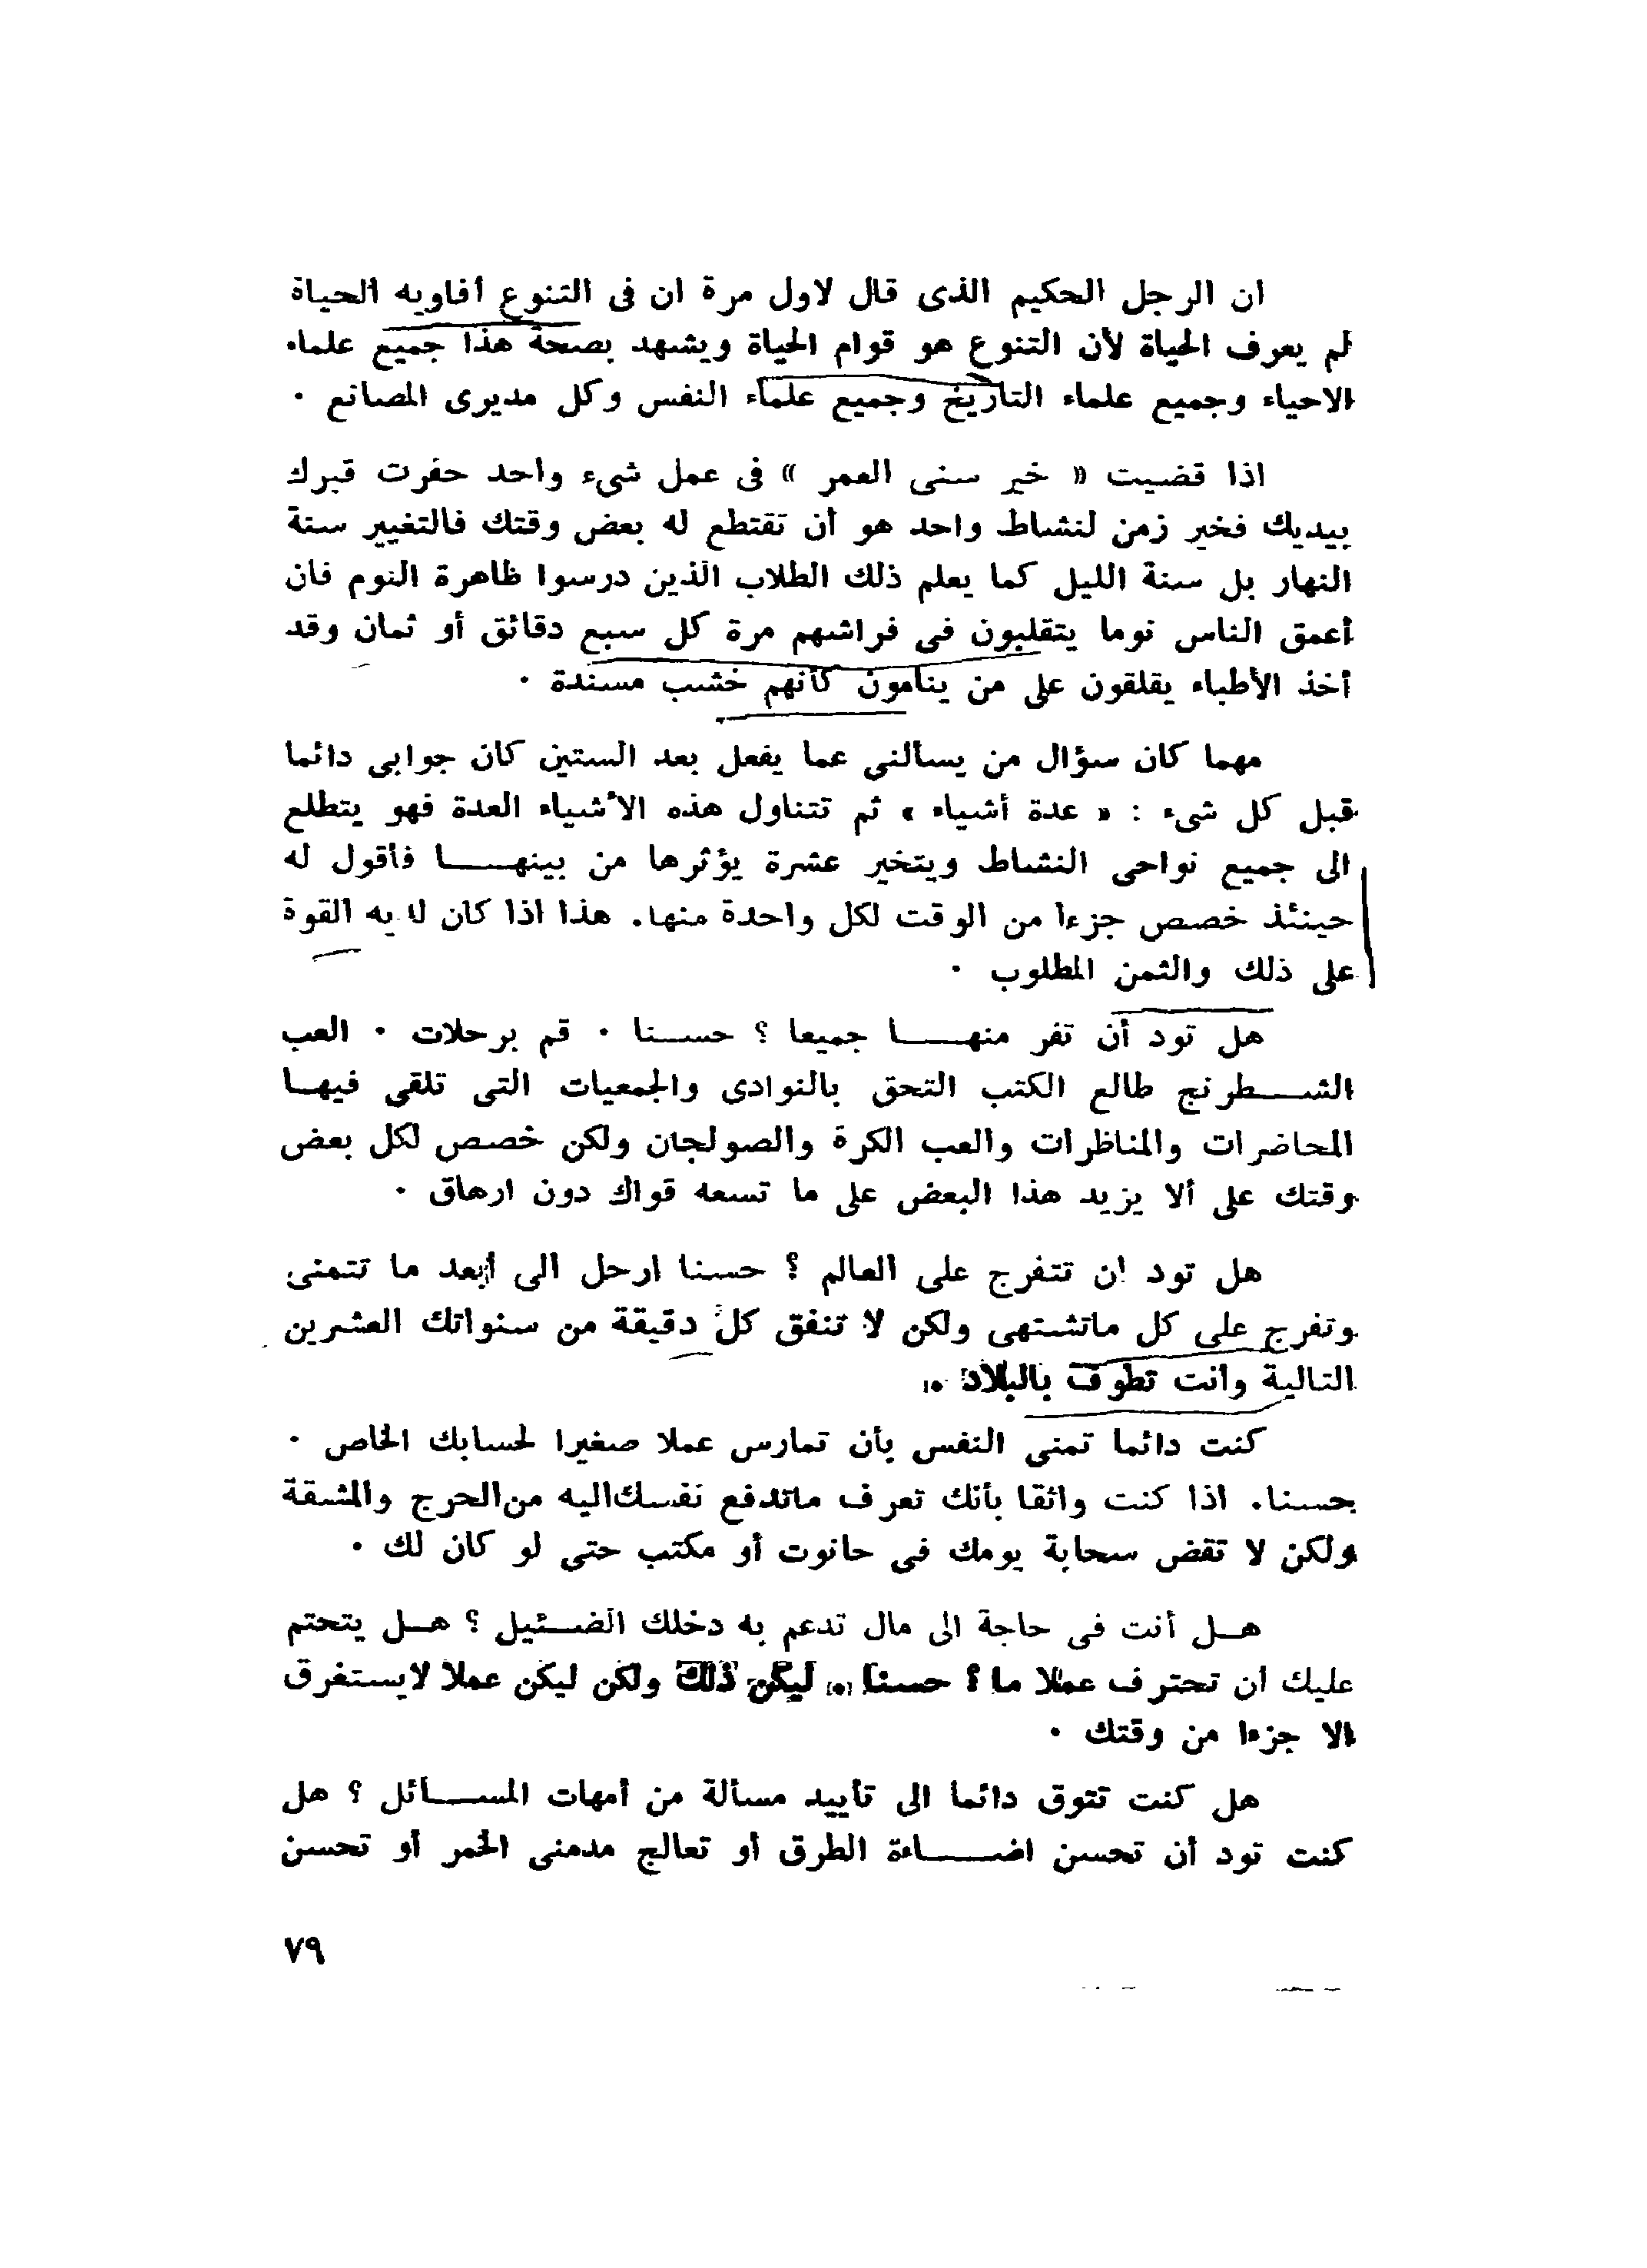 ان الرجل الحكيم الذى قال لاول مرة ان فى التنوع أفاويه الحياة
لم يعرف الحياة لأن التنوع هو قوام الحياة ويشهد بصحة هذا جميع علماء
الاحياء وجميع علماء التاريخ وجميع علماء النفس وكل مديرى المصانع ٠
اذا قضيت « خير سنى العمر » فى عمل شىء واحد حفرت قبرك
بيديك فخير زمن لنشاط واحد هو أن تقتطع له بعض وقتك فالتغيير سنة
النهار بل سنة الليل كما يعلم ذلك الطلاب الذين درسوا ظاهرة النوم فان
أعمق الناس نوما يتقلبون فى فراشهم مرة كل سبع دقائق أو ثمان وقد
أخذ الأطباء يقلقون على من ينامون كأنهم خشب مسندة ٠
مهما كان سؤال من يسألنى عما يفعل بعد الستين كان جوابى دائما
قبل كل شىء : « عدة أشياء » ثم تتناول هذه الأشياء العدة فهو يتطلع
الى جميع نواحى النشاط ويتخير عشرة يؤثرها من بينهـــا فأقول له
حينئذ خصص جزءا من الوقت لكل واحدة منها. هذا اذا كان لديه القوة
على ذلك والثمن المطلوب ٠
هل تود أن تفر منهـــا جميعا ؟ حسـنا ٠ قم برحلات ٠ العب
الشـــطرنج طالع الكتب التحق بالنوادى والجمعيات التى تلقى فيهـا
المحاضرات والمناظرات والعب الكرة والصولجان ولكن خصص لكل بعض
وقتك على ألا يزيد هذا البعض على ما تسعه قواك دون ارهاق ٠
هل تود ان تتفرج على العالم ؟ حسنا ارحل الى أبعد ما تتمنى
وتفرج على كل ماتشتهى ولكن لا تنفق كل دقيقة من سنواتك العشرين
التالية وأنت تطوف بالبلاد ٠
كنت دائما تمنى النفس بأن تمارس عملا صغيرا لحسابك الخاص ٠
حسنا. اذا كنت واثقا بأنك تعرف ماتدفع نفسك اليه من الحرج والمشقة
ولكن لا تقض سحابة يومك فى حانوت أو مكتب حتى لو كان لك ٠
هـل أنت فى حاجة الى مال تدعم به دخلك الضـئيل ؟ هـل يتحتم
عليك ان تحترف عملا ما ؟ حسنا ٠ ليكن ذلك ولكن ليكن عملا لايستغرق
الا جزءا من وقتك ٠
هل كنت تتوق دائما الى تأييد مسألة من أمهات المســائل ؟ هل
كنت تود أن تحسن اضـــاءة الطرق أو تعالج مدمنى الخمر أو تحسن
٧٩